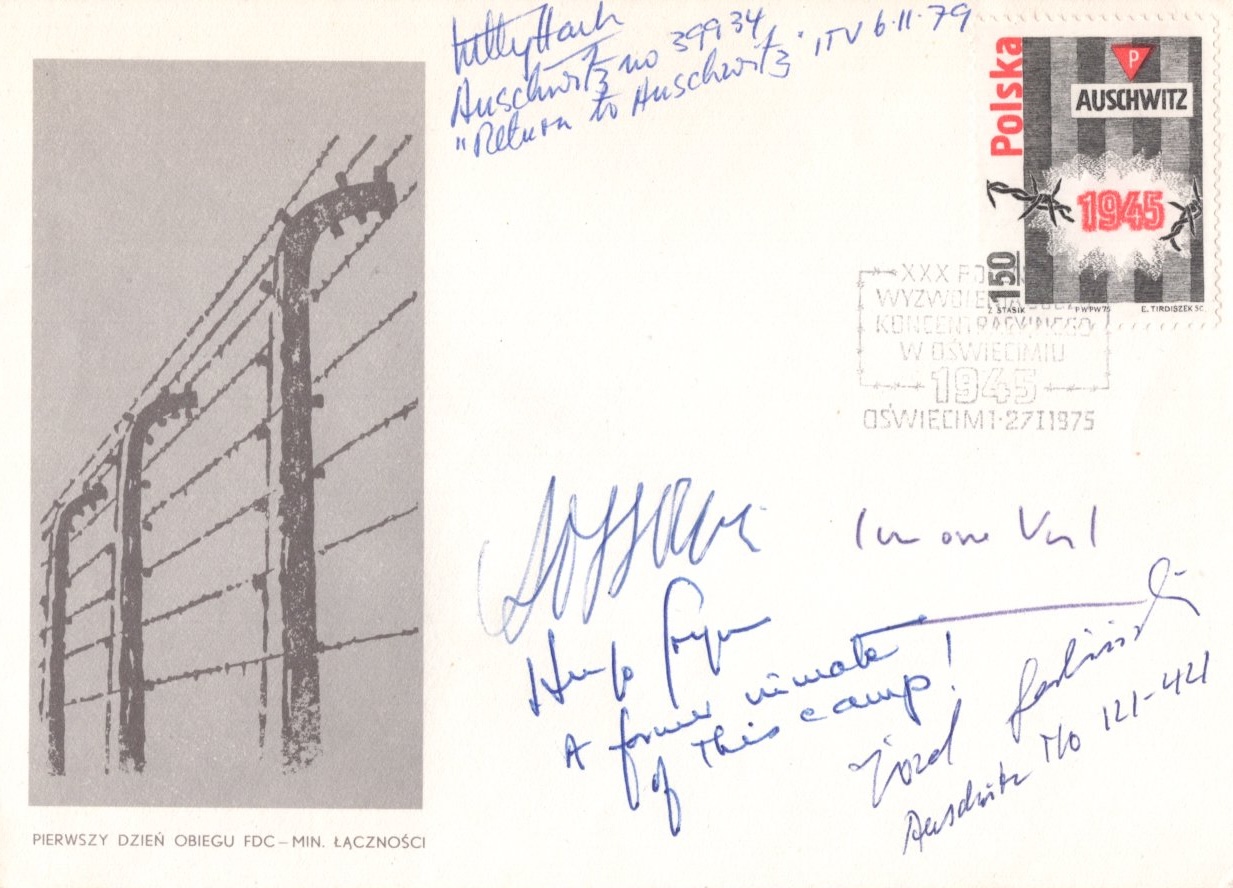 Kitty Hart
Auschwitz no 39934
"Return to Auschwitz" ITV 6·11·79
Polska
P
AUSCHWITZ
1945
150
Z. STASIK PWPW 75 E. TIRDISZEK SC.
XXX
WYZWOLENIA
KONCENTRACYJNEGO
W OŚWIĘCIMIU
1945
OŚWIĘCIM 1·27 I 1975
Hugo Gryn
A former inmate
of this camp!
Józef Garliński
Auschwitz No 121-421
PIERWSZY DZIEŃ OBIEGU FDC – MIN. ŁĄCZNOŚCI